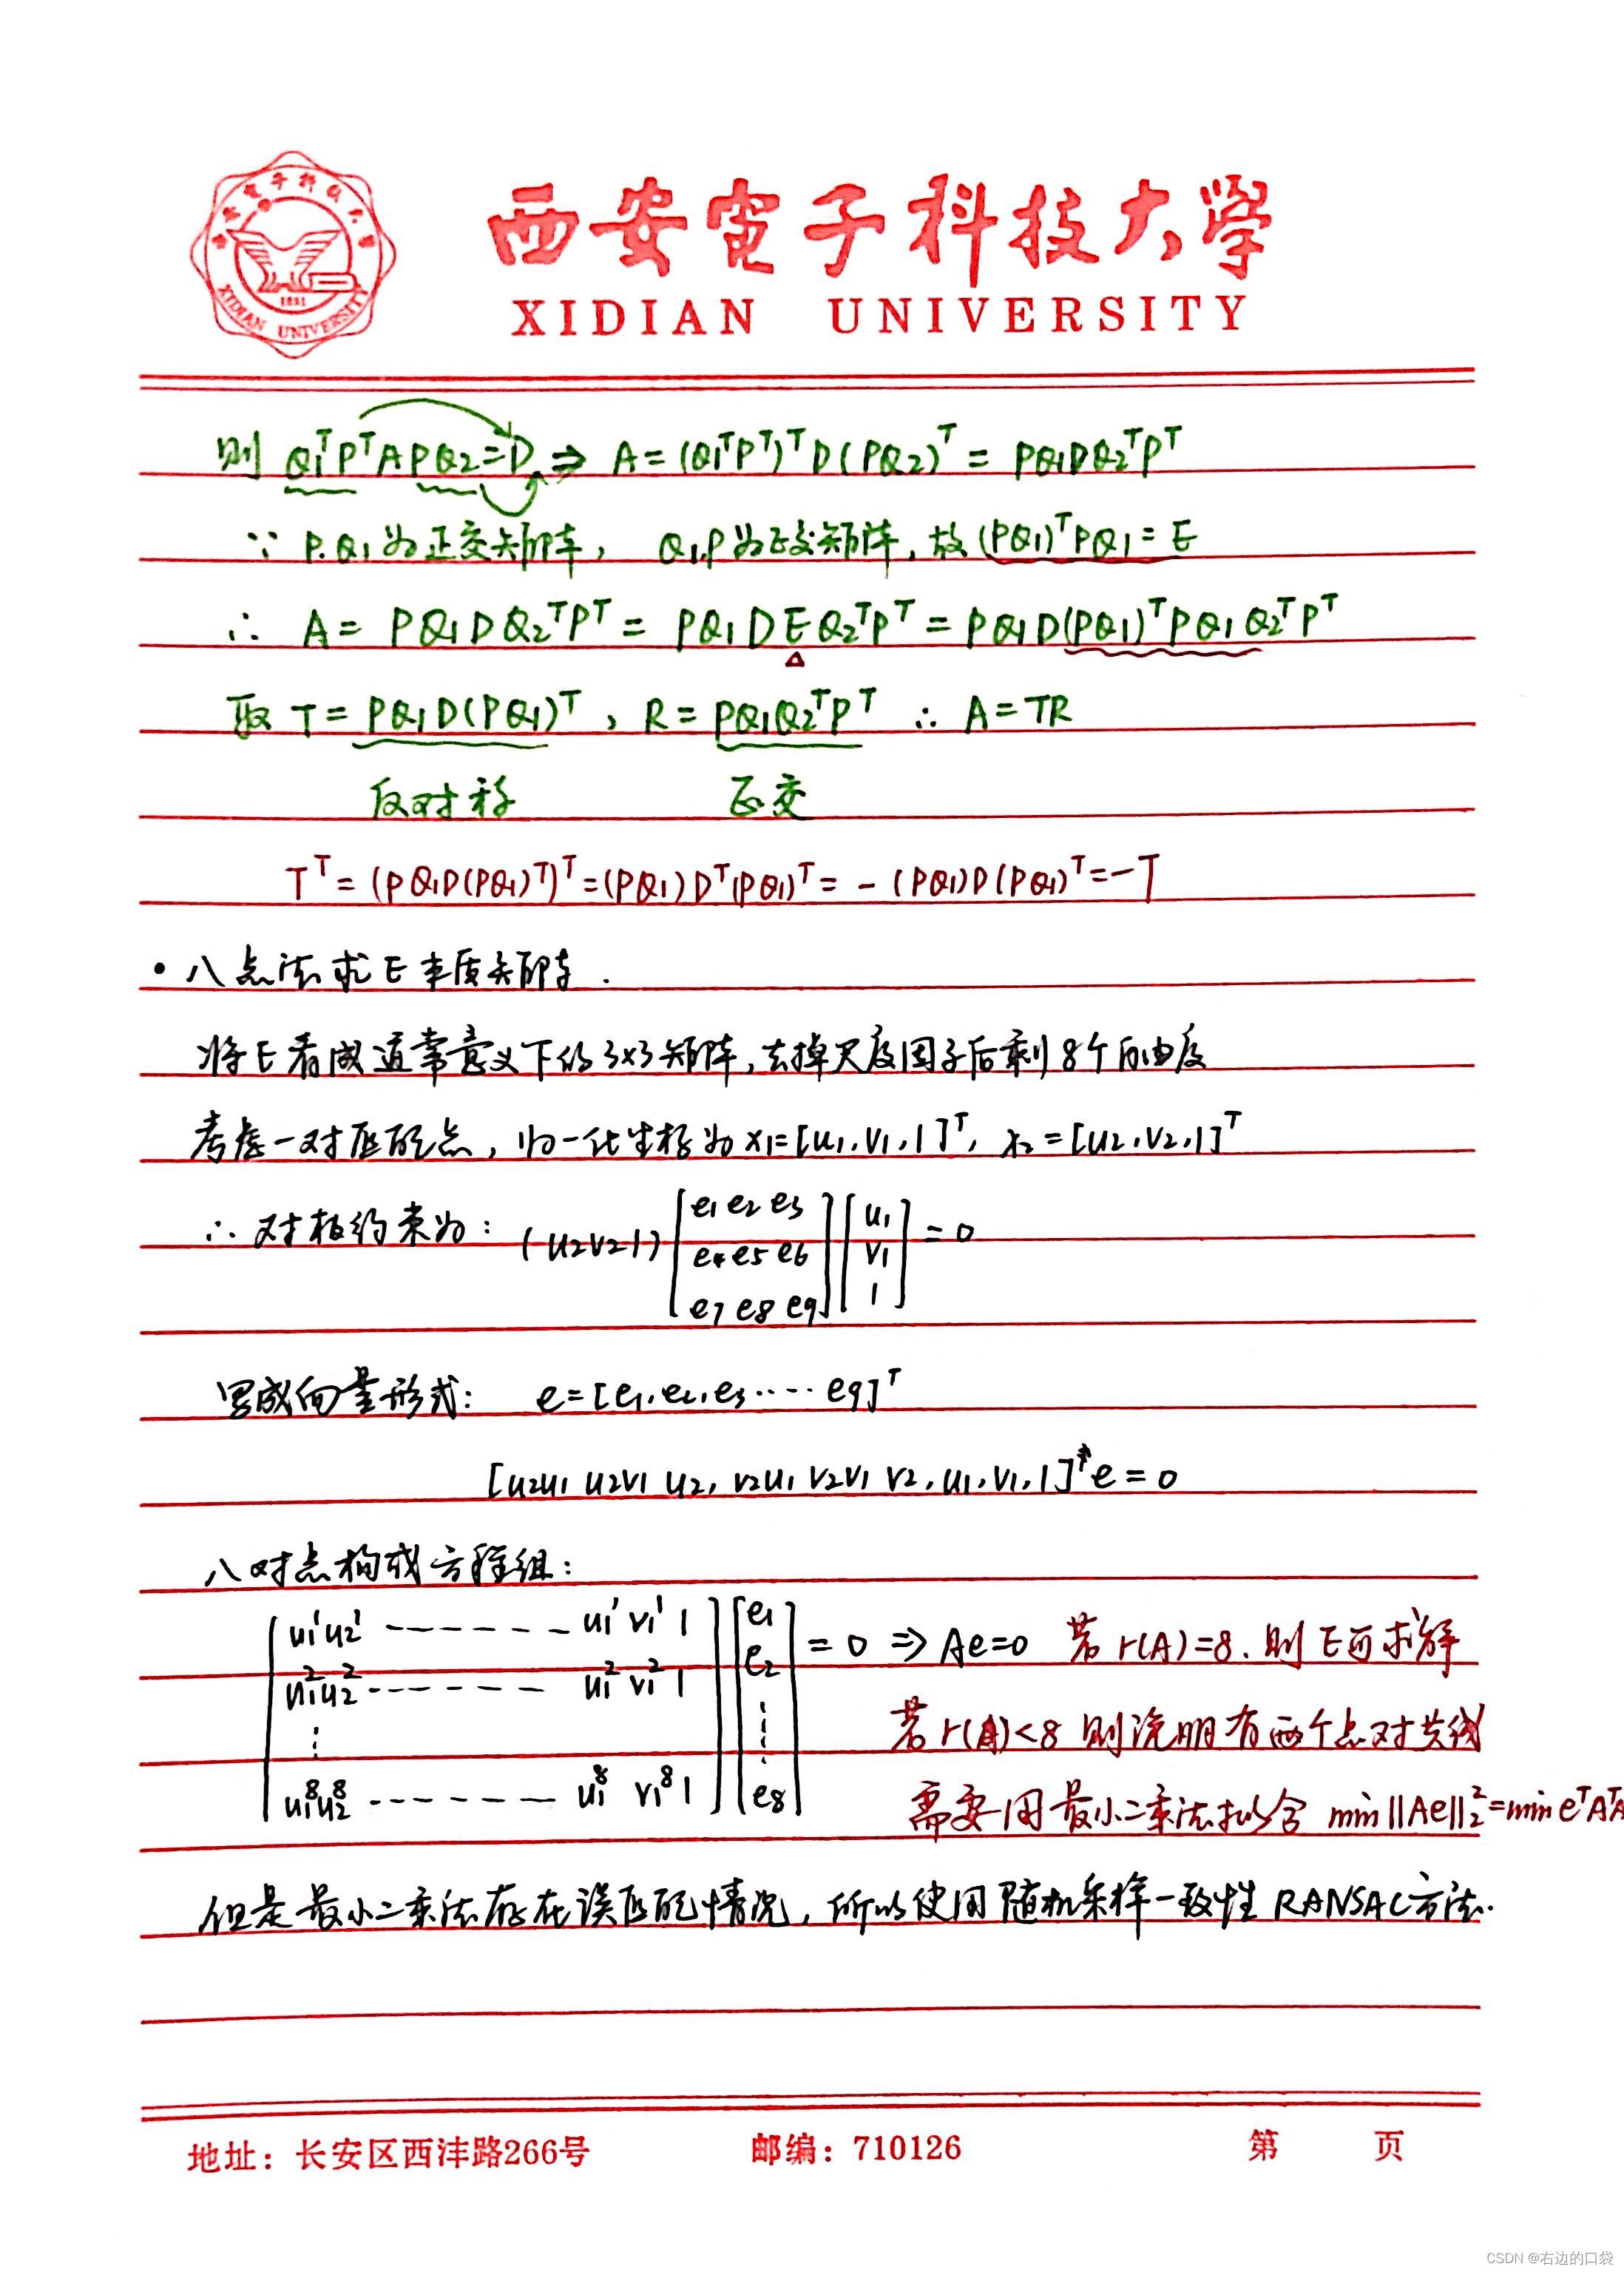 西安電子科技大學
XIDIAN UNIVERSITY
XIDIAN UNIVERSITY
1931
则 Q₁ᵀPᵀAPQ₂=D ⇒ A=(Q₁ᵀPᵀ)ᵀD(PQ₂)ᵀ = PQ₁DQ₂ᵀPᵀ
∵ P.Q₁为正交矩阵, Q₁.P为正交矩阵,故(PQ₁)ᵀPQ₁=E
∴ A= PQ₁DQ₂ᵀPᵀ = PQ₁DEQ₂ᵀPᵀ = PQ₁D(PQ₁)ᵀPQ₁Q₂ᵀPᵀ
取 T=PQ₁D(PQ₁)ᵀ, R=PQ₁Q₂ᵀPᵀ ∴ A=TR
反对称 正交
Tᵀ=(PQ₁D(PQ₁)ᵀ)ᵀ=(PQ₁)Dᵀ(PQ₁)ᵀ= -(PQ₁)D(PQ₁)ᵀ=-T
• 八点法求E本质矩阵.
将E看成通常意义下的3x3矩阵,去掉尺度因子后剩8个自由度
考虑一对匹配点,归一化坐标为x₁=[u₁,v₁,1]ᵀ, x₂=[u₂,v₂,1]ᵀ
∴ 对极约束为: (u₂v₂1) [e₁e₂e₃ [u₁
e₄e₅e₆ v₁ =0
e₇e₈e₉] 1]
写成向量形式: e=[e₁,e₂,e₃.....e₉]ᵀ
[u₂u₁ u₂v₁ u₂, v₂u₁ v₂v₁ v₂, u₁,v₁,1]ᵀe=0
八对点构成方程组:
[u₁¹u₂¹ ------- u₁¹ v₁¹ 1 [e₁ =0 ⇒ Ae=0 若r(A)=8.则E可求解
u₁²u₂² ------- u₁² v₁² 1 e₂
⋮ ⋮ 若r(A)<8 则说明有两个点对共线
u₁⁸u₂⁸ ------- u₁⁸ v₁⁸ 1] e₈] 需要用最小二乘法拟合 min||Ae||₂²=min eᵀAᵀA
但是最小二乘法存在误匹配情况,所以使用随机采样一致性RANSAC方法.
地址: 长安区西沣路266号 邮编: 710126 第 页
CSDN @右边的口袋